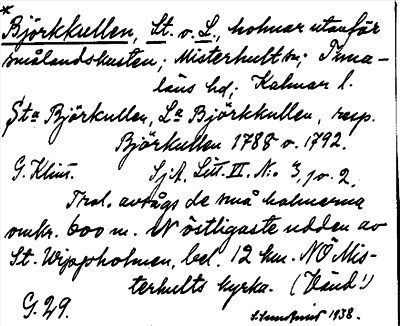 *
Björkkullen, St. o. L., holmar utanför
smålandskusten; Misterhult sn; Tuna-
läns hd; Kalmar l.
Sta Björkullen, La Björkkullen, resp.
Björkullen 1788 o. 1792.
G. Klint. Sj.A. Litt. II. No 3, o. 2,
Trol. avsågs de små holmarna
omkr. 600 m. N östligaste udden av
St. Wippholmen, bel. 12 km. NÖ Mis-
terhults kyrka. (Vänd!)
G. 29. 1938.